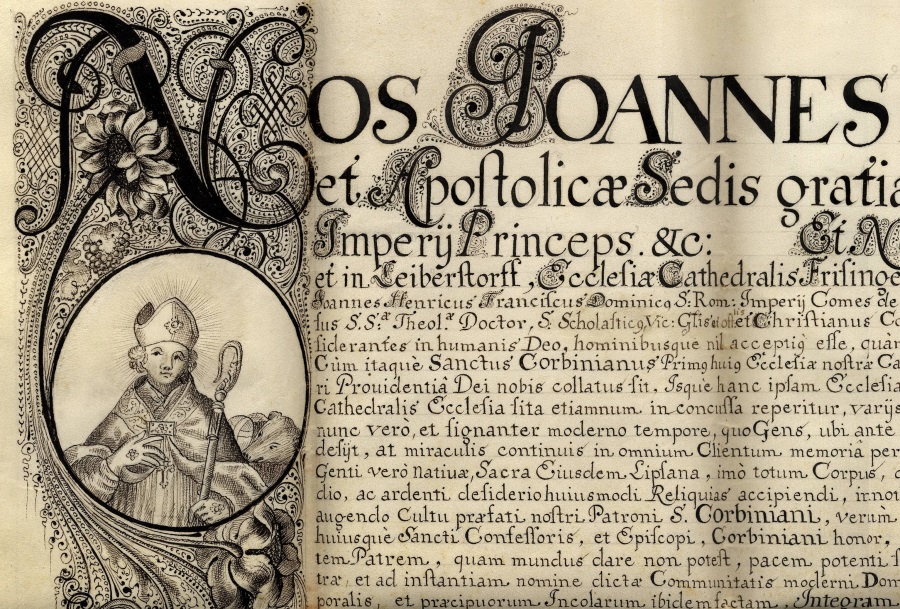 NOS JOANNES
et Apoſtolicæ Sedis gratia
Imperij Princeps. &c: Et. N
et in Leiberſtorff, Ecclesiæ Cathedralis Friſinge
Joannes Henricus Franciſcus Dominicq S: Rom: Imperij Comes de
ſus S.S.æ Theol.æ Doctor, S. Scholaſticq Vic: et Chriſtianus Co
ſiderantes in humanis Deo, hominibusque nil acceptiq eſſe, quàm
Cùm itaquè Sanctus Corbinianus Primq huiq Eccleſiæ noſtræ Ca
ri Prouidentiâ Dei nobis collatus ſit, Isque hanc ipſam Eccleſia
Cathedralis Eccleſia ſita etiamnum in concuſſa reperitur, varijs
nunc verò, et ſignanter moderno tempore, quo Gens, ubi ante
deſijt, at miraculis continuis in omnium Clientum memoriâ per
Genti verò natiuæ, Sacra Eiusdem Lipſana, imò totum Corpus,
dio, ac ardenti deſiderio huiusmodi Reliquias accipiendi, irno
augendo Cultu præfati noſtri Patroni S. Corbiniani, verùm
huiusque Sancti Confeſſoris, et Epiſcopi, Corbiniani honor,
tem Patrem, quam mundus dare non poteſt, pacem potenti ſ
træ, et ad inſtantiam nomine dictæ Communitatis moderni Dom
poralis, et præcipuorum Incolarum ibidem factam, Integram